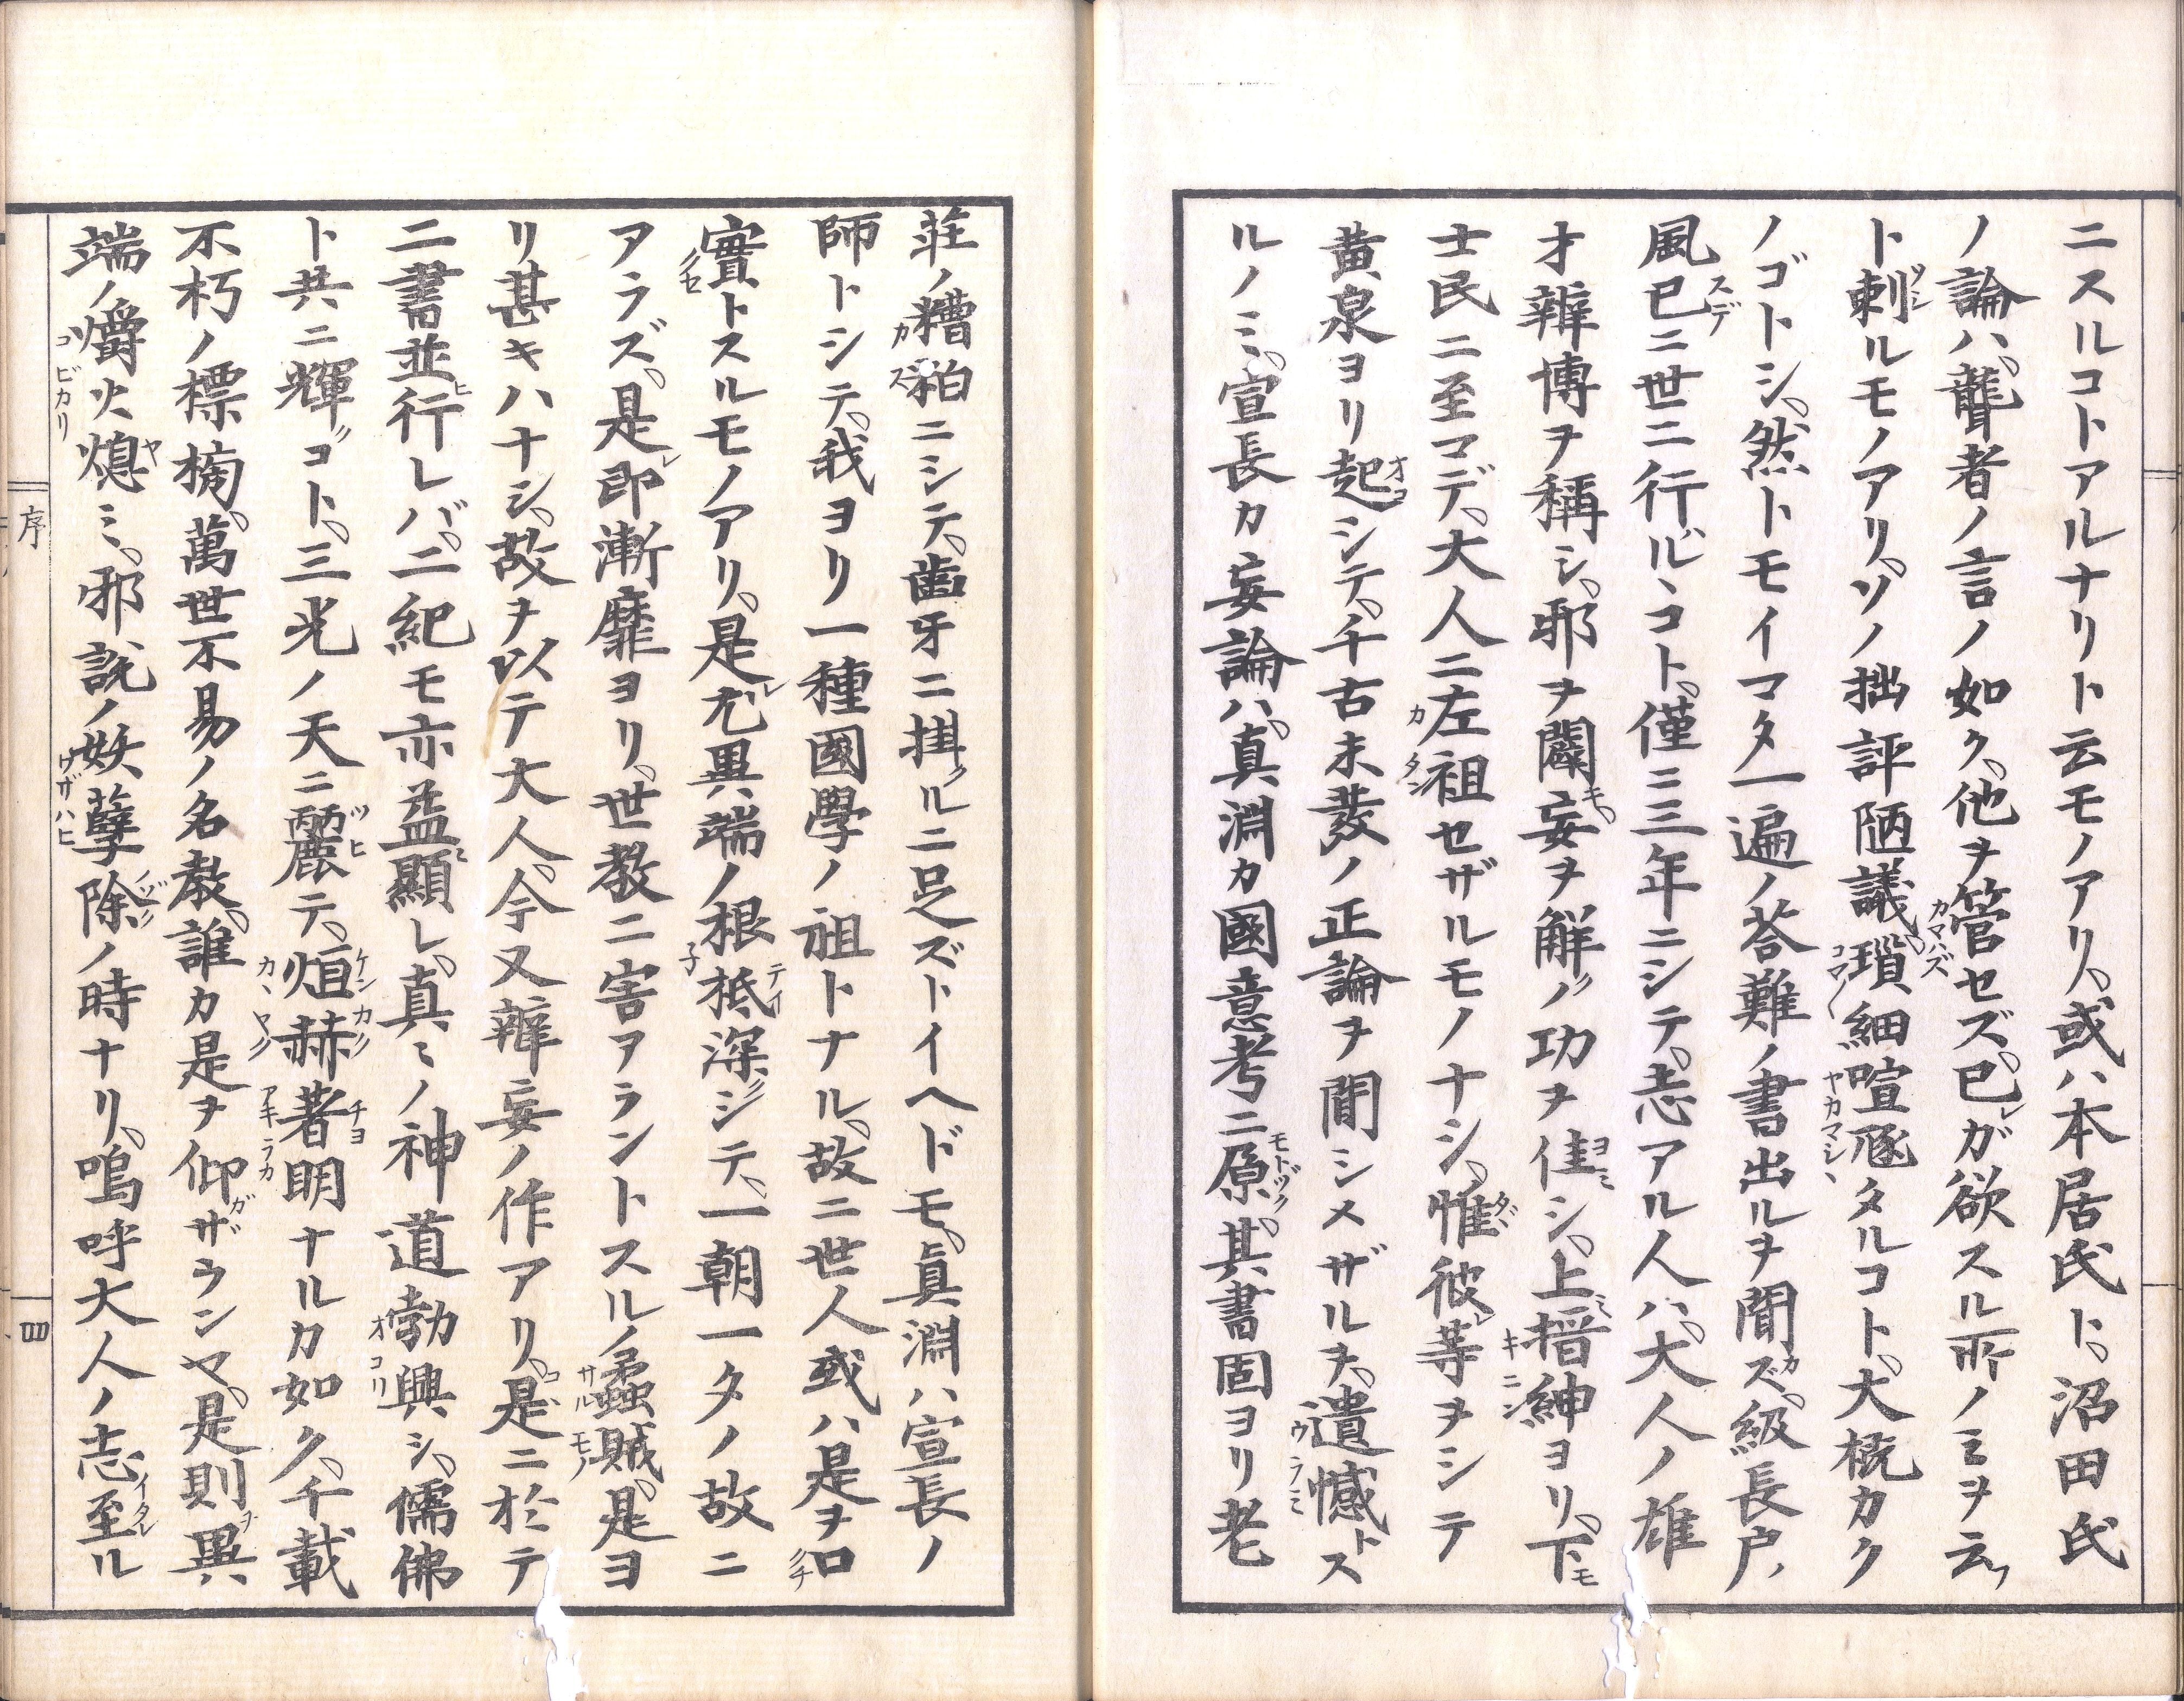 ニスルコトアルナリト云モノアリ。或ハ本居氏ト。沼田氏
ノ論ハ。聾者ノ言ノ如ク。他ヲ管セズ。已ガ欲スル所ノミヲ云フ
ト刺ルモノアリ。ソノ拙評陋議。瑣細喧豗タルコト。大概カク
ノゴトシ。然トモイマタ一遍ノ荅難ノ書出ルヲ聞ズ。級長戸ノ
風已ニ世ニ行ルヽコト。僅ニ三年ニシテ。志アル人ハ。大人ノ雄
才辯博ヲ稱シ。邪ヲ闢妄ヲ解ノ功ヲ佳シ。上搢紳ヨリ。下モ
士民ニ至マデ。大人ニ左袒セザルモノナシ。惟彼等ヲシテ
黄泉ヨリ起シテ。千古未發ノ正論ヲ聞シメザルヲ。遺憾トス
ルノミ。宣長カ妄論ハ。真淵カ國意考ニ原。其書固ヨリ老
荘ノ糟粕ニシテ。齒牙ニ掛ルニ足ズトイヘドモ。眞淵ハ宣長ノ
師トシテ。我ヨリ一種國學ノ祖トナル。故ニ世人或ハ是ヲ口
實トスルモノアリ。是尤異端ノ根柢深シテ。一朝一タノ故ニ
アラズ。是即漸靡ヨリ。世教ニ害アラントスルノ蟊賊。是ヨ
リ甚キハナシ。故ヲ以テ大人。今又辯妄ノ作アリ。是ニ於テ
二書並行レバ。二紀モ亦益顯レ。真ミノ神道勃興シ。儒佛
ト共ニ輝コト。三光ノ天ニ麗テ。烜赫著明ナルカ如ク。千載
不朽ノ標𣖙。萬世不易ノ名教。誰カ是ヲ仰ザランヤ。是則異
端ノ爝火熄ミ。邪説ノ妖孽除ノ時ナリ。嗚呼大人ノ志至ル
序
四